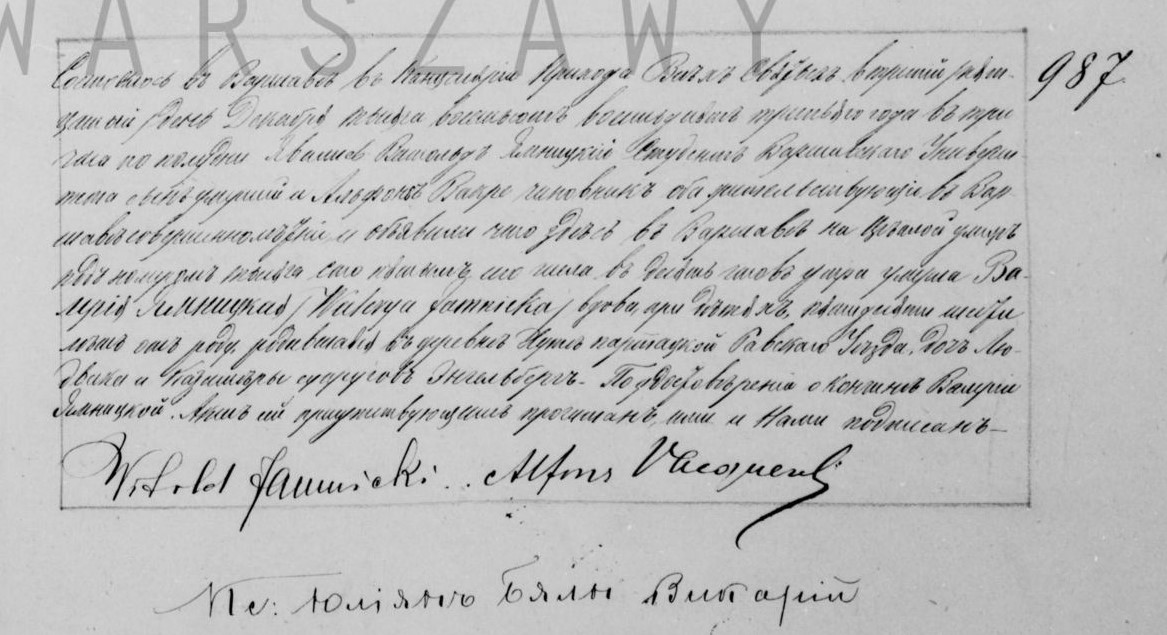 WARSZAWY
987
Состоялось въ Варшавѣ въ Канцеляріи Прихода Всѣхъ Святыхъ въ третій /пят-
цатый/ день Декабря мѣсяца восемьсотъ восемьдесятъ третьяго года въ три
часа по полудни. Явились Витольдъ Ямницкій Студентъ Варшавскаго Универси
тета сынъ умершей и Альфонсъ Вакре чиновникъ оба жительствующіе въ Вар
шавѣ совершеннолѣтніе, и объявили что здѣсь въ Варшавѣ на улицѣ
подъ номеромъ мѣсяца сего числа въ десять часовъ утра умерла Ва-
лерія Ямницкая /Walerya Jamnicka/ вдова, при дѣтяхъ, пятидесяти шести
лѣтъ отъ роду, родившаяся въ деревнѣ Равскаго Уѣзда, дочь Лю-
двика и Казимѣры супруговъ Энгельбергъ. По удостовѣреніи о кончинѣ Валеріи
Ямницкой. Актъ сей присутствующимъ прочитанъ, ими и Нами подписанъ—
Witold Jamnicki. Alfons Vacqueret
Кс: Юліянъ Бялы Викарій